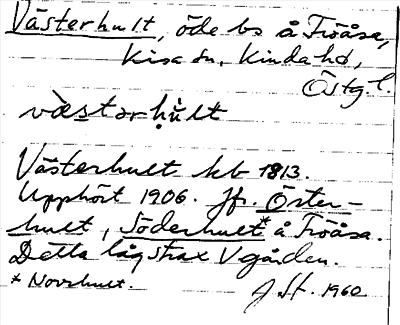 Västerhult, öde bs å Fröåsa,
Kisa sn, Kinda hd,
Östg. l.
væstərhu̇lt
Västerhult kb 1813.
Upphört 1906. Jfr. Öster-
hult, Söderhult* å Fröåsa.
Detta låg strax V gården.
* Norrhult.
J. St. 1960